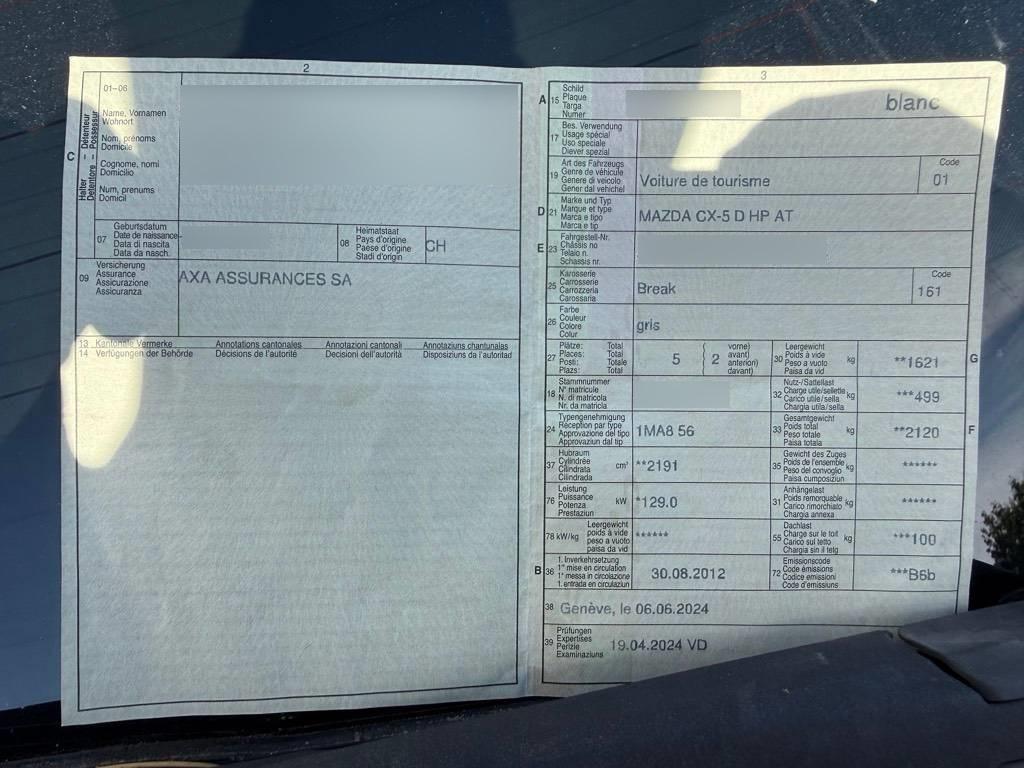 2
01-06
Name, Vornamen
Wohnort
Nom, prénoms
Domicile
Cognome, nomi
Domicilio
Num, prenums
Domicil
C
Halter – Détenteur
Detentore – Possessur
07
Geburtsdatum
Date de naissance
Data di nascita
Data da nasch.
08
Heimatstaat
Pays d'origine
Paese d'origine
Stadi d'origin
CH
09
Versicherung
Assurance
Assicurazione
Assicuranza
AXA ASSURANCES SA
13 Kantonale Vermerke Annotations cantonales Annotazioni cantonali Annotaziuns chantunalas
14 Verfügungen der Behörde Décisions de l'autorité Decisioni dell'autorità Disposiziuns da l'autoritad
3
A 15
Schild
Plaque
Targa
Numer
blanc
17
Bes. Verwendung
Usage spécial
Uso speciale
Diever spezial
19
Art des Fahrzeugs
Genre de véhicule
Genere di veicolo
Gener dal vehichel
Voiture de tourisme
Code
01
D 21
Marke und Typ
Marque et type
Marca e tipo
Marca e tip
MAZDA CX-5 D HP AT
E 23
Fahrgestell-Nr.
Châssis no
Telaio n.
Schassis nr.
25
Karosserie
Carrosserie
Carrozzeria
Carossaria
Break
Code
161
26
Farbe
Couleur
Colore
Colur
gris
27
Plätze: Total
Places: Total
Posti: Totale
Plazs: Total
5
( 2
vorne)
avant)
anteriori)
davant)
30
Leergewicht
Poids à vide
Peso a vuoto
Paisa da vid
kg
**1621
G
18
Stammnummer
N° matricule
N. di matricola
Nr. da matricla
32
Nutz-/Sattellast
Charge utile/sellette
Carico utile/sella
Chargia utila/sella
kg
***499
24
Typengenehmigung
Réception par type
Approvazione del tipo
Approvaziun dal tip
1MA8 56
33
Gesamtgewicht
Poids total
Peso totale
Paisa totala
kg
**2120
F
37
Hubraum
Cylindrée
Cilindrata
Cilindrada
cm³
**2191
35
Gewicht des Zuges
Poids de l'ensemble
Peso del convoglio
Paisa cumposiziun
kg
******
76
Leistung
Puissance
Potenza
Prestaziun
kW
*129.0
31
Anhängelast
Poids remorquable
Carico rimorchiato
Chargia annexa
kg
******
78 kW/kg
Leergewicht
poids à vide
peso a vuoto
paisa da vid
******
55
Dachlast
Charge sur le toit
Carico sul tetto
Chargia sin il tetg
kg
***100
B 36
1. Inverkehrsetzung
1re mise en circulation
1a messa in circolazione
1. entrada en circulaziun
30.08.2012
72
Emissionscode
Code émissions
Codice emissioni
Code d'emissiuns
***B6b
38 Genève, le 06.06.2024
39
Prüfungen
Expertises
Perizie
Examinaziuns
19.04.2024 VD